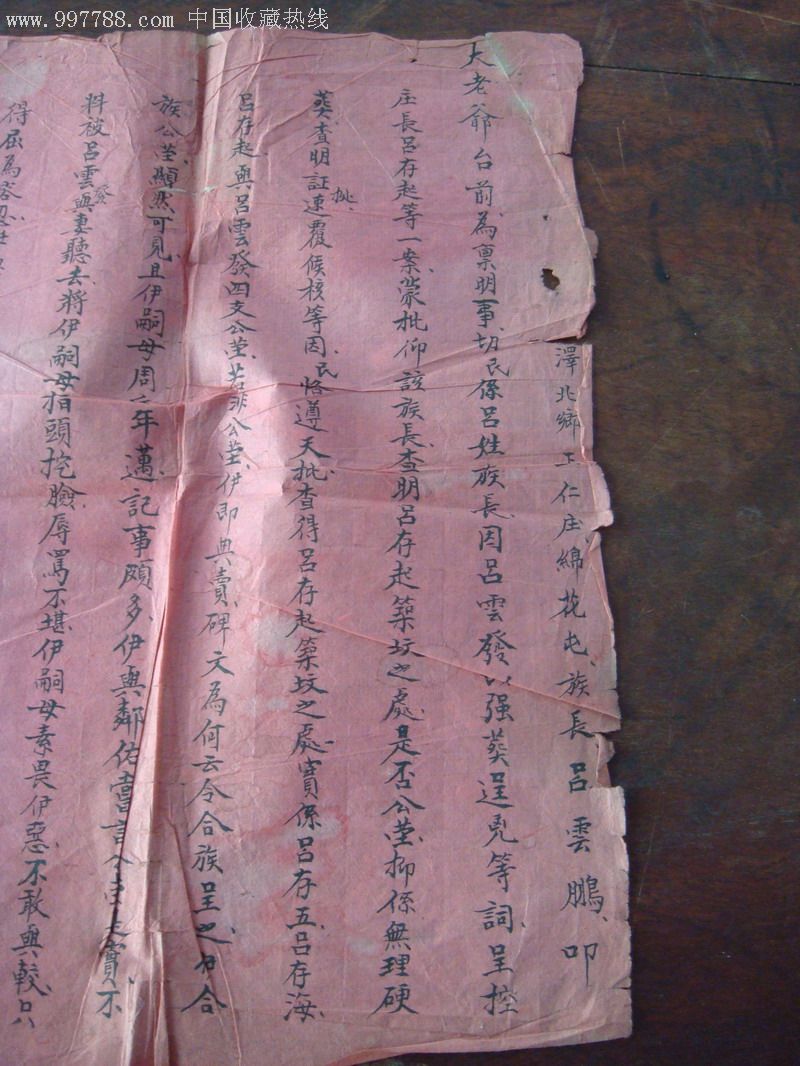 www.997788.com 中国收藏热线
澤北鄉工仁庄綿花屯族長呂雲鵬叩
大老爺台前為禀明事切民係呂姓族長因呂雲發以强葬逞兇等詞呈控
庄長呂存起等一案蒙批仰該族長查明呂存起築坟之處是否公塋抑係無理硬
葬查明証速覆候核等因民恪遵天批查得呂存起築坟之處實係呂存五呂存海
批
呂存起與呂雲發四支公塋若非公塋伊即典賣碑文為何云令合族呈之合
族公塋顯然可見且伊嗣母周年邁記事頗多伊與鄰佑嘗言公實不
料被呂雲發與妻聽去將伊嗣母拍頭挖臉辱罵不堪伊嗣母素畏伊惡不敢與較只
得屈為容忍